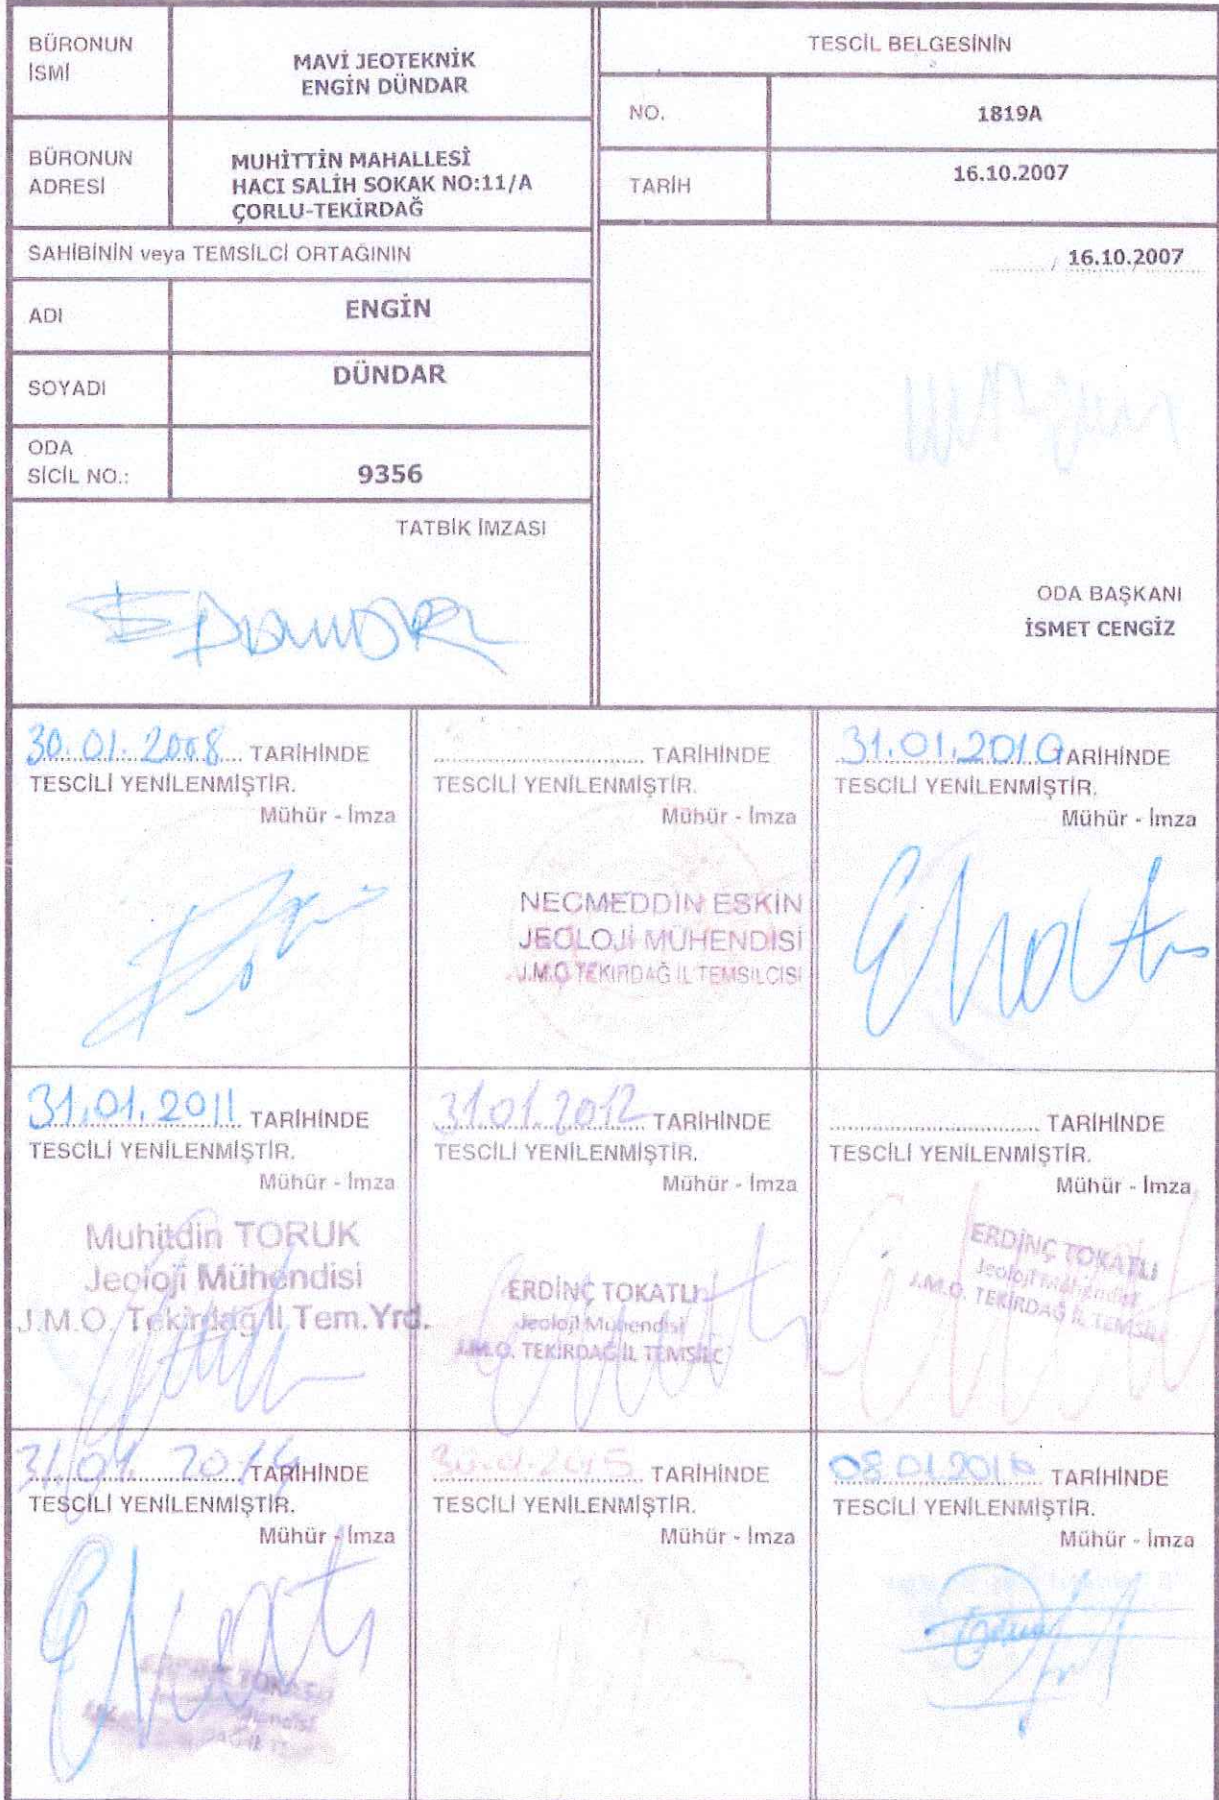 BÜRONUN
İSMİ
MAVİ JEOTEKNİK
ENGİN DÜNDAR
BÜRONUN
ADRESİ
MUHİTTİN MAHALLESİ
HACI SALİH SOKAK NO:11/A
ÇORLU-TEKİRDAĞ
SAHİBİNİN veya TEMSİLCİ ORTAĞININ
ADI
ENGİN
SOYADI
DÜNDAR
ODA
SİCİL NO.:
9356
TATBİK İMZASI
TESCİL BELGESİNİN
NO.
1819A
TARİH
16.10.2007
16.10.2007
ODA BAŞKANI
İSMET CENGİZ
30.01.2008 TARİHİNDE
TESCİLİ YENİLENMİŞTİR.
Mühür - İmza
TARİHİNDE
TESCİLİ YENİLENMİŞTİR.
Mühür - İmza
NECMEDDİN ESKİN
JEOLOJİ MÜHENDİSİ
J.M.O TEKİRDAĞ İL TEMSİLCİSİ
31.01.2010 TARİHİNDE
TESCİLİ YENİLENMİŞTİR.
Mühür - İmza
31.01.2011 TARİHİNDE
TESCİLİ YENİLENMİŞTİR.
Mühür - İmza
Muhitdin TORUK
Jeoloji Mühendisi
J.M.O. Tekirdağ İl Tem.Yrd.
31.01.2012 TARİHİNDE
TESCİLİ YENİLENMİŞTİR.
Mühür - İmza
ERDİNÇ TOKATLI
Jeoloji Mühendisi
J.M.O. TEKİRDAĞ İL TEMSİLC
TARİHİNDE
TESCİLİ YENİLENMİŞTİR.
Mühür - İmza
ERDİNÇ TOKATLI
Jeoloji Mühendisi
J.M.O. TEKİRDAĞ İL TEMSİLC
31.01.2014 TARİHİNDE
TESCİLİ YENİLENMİŞTİR.
Mühür - İmza
30.01.2015 TARİHİNDE
TESCİLİ YENİLENMİŞTİR.
Mühür - İmza
08.01.2016 TARİHİNDE
TESCİLİ YENİLENMİŞTİR.
Mühür - İmza